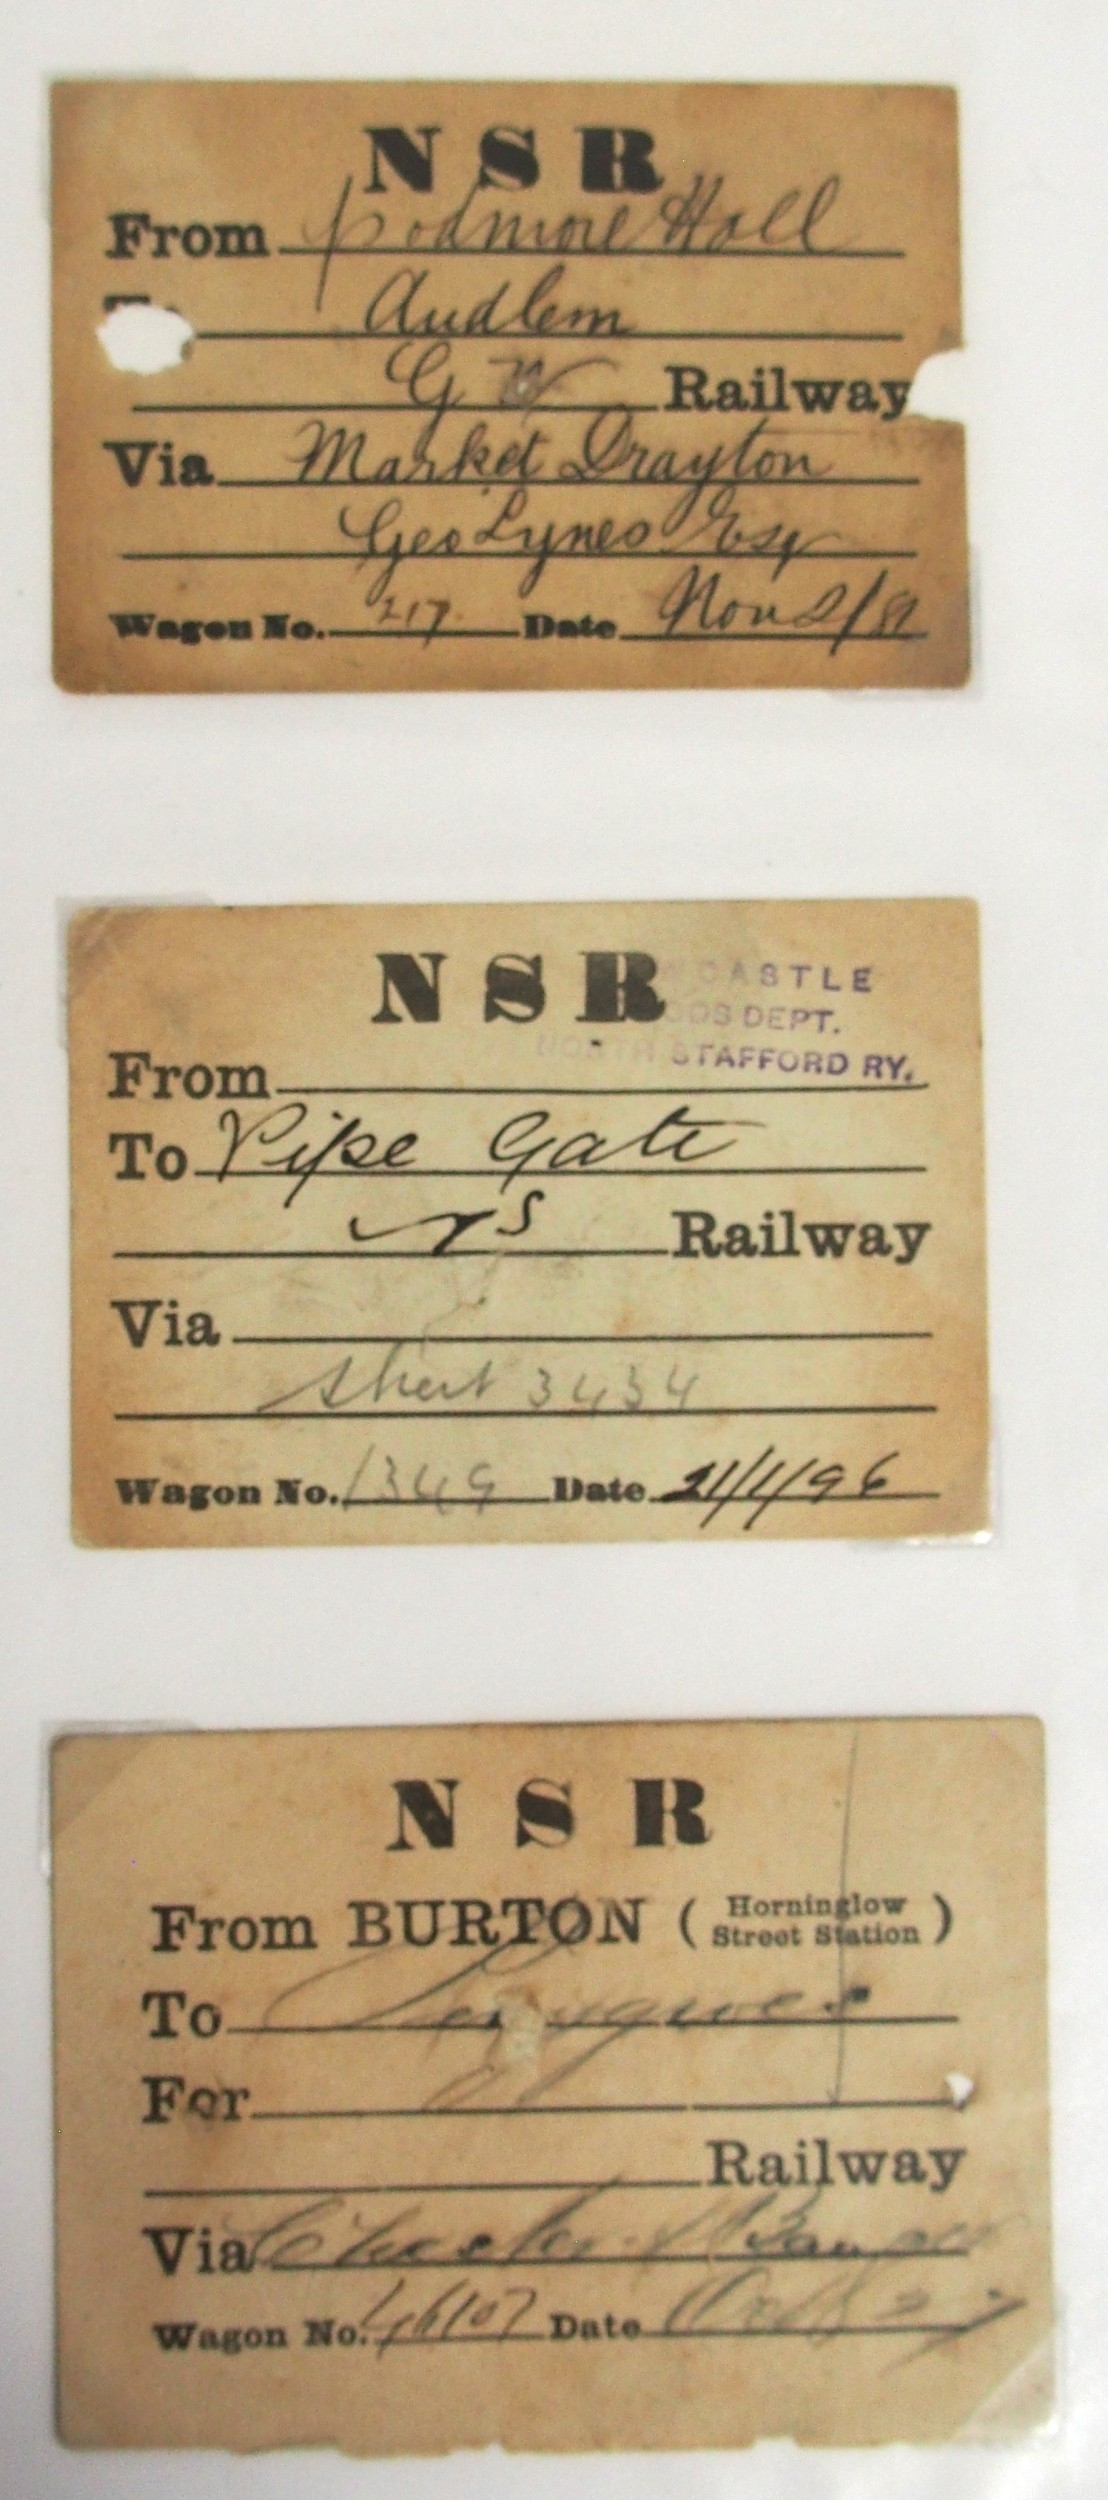 N S R
From Podmore Hall
To Audlem
G W Railway
Via Market Drayton
Geo Lynes Esq
Wagon No. 217 Date Nov 2/81
N S R
CASTLE
DS DEPT.
NORTH STAFFORD RY.
From
To Pipe Gate
NS Railway
Via
Sheet 3434
Wagon No. 1349 Date 21/1/96
N S R
From BURTON ( Horninglow Street Station )
To
For
Railway
Via Chester & Bangor
Wagon No. 46107 Date Oct